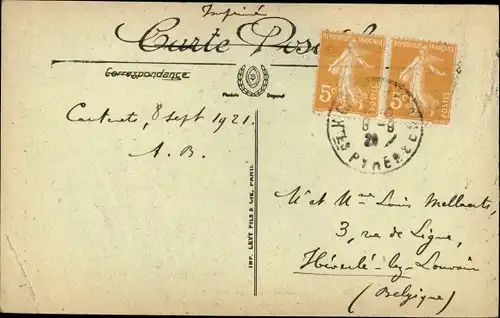 Imprimé
Carte Postale
Correspondance
Produits Depose
Cauterets, 8 Sept 1921.
A. B.
IMP. LEVY FILS & CIE, PARIS
REPUBLIQUE FRANÇAISE
5c POSTES
REPUBLIQUE FRANÇAISE
5c POSTES
PYRÉNÉES
Mr et Mme Louis Mellaerts
3, rue de Ligne,
Héverlé-lez-Louvain
(Belgique)